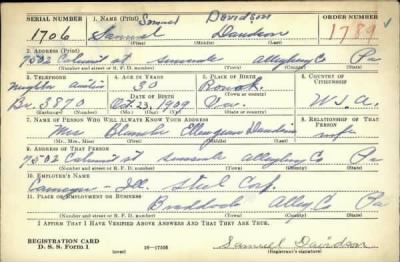 SERIAL NUMBER 1. NAME (Print) Samuel Davidson ORDER NUMBER
1706 Samuel Davidson 1789
(First) (Middle) (Last)
2. ADDRESS (Print)
7502 Calumet st Swissvale Allegheny Co Pa
(Number and street or R. F. D. number) (Town) (County) (State)
3. TELEPHONE 4. AGE IN YEARS 5. PLACE OF BIRTH 6. COUNTRY OF CITIZENSHIP
30 Roanok
DATE OF BIRTH (Town or county)
Br. 3870 Oct. 23, 1909 Va. U.S.A.
(Exchange) (Number) (Mo.) (Day) (Yr.) (State or country)
7. NAME OF PERSON WHO WILL ALWAYS KNOW YOUR ADDRESS 8. RELATIONSHIP OF THAT PERSON
Mrs Blanche Davidson wife
(Mr., Mrs., Miss) (First) (Middle) (Last)
9. ADDRESS OF THAT PERSON
7502 Calumet st Swissvale Allegheny Co Pa
(Number and street or R. F. D. number) (Town) (County) (State)
10. EMPLOYER'S NAME
Carnegie - Ill. Steel Corp.
11. PLACE OF EMPLOYMENT OR BUSINESS
Braddock Alleg Co Pa
(Number and street or R. F. D. number) (Town) (County) (State)
I AFFIRM THAT I HAVE VERIFIED ABOVE ANSWERS AND THAT THEY ARE TRUE.
REGISTRATION CARD
D. S. S. Form 1 (over) 16—17105 Samuel Davidson
(Registrant's signature)